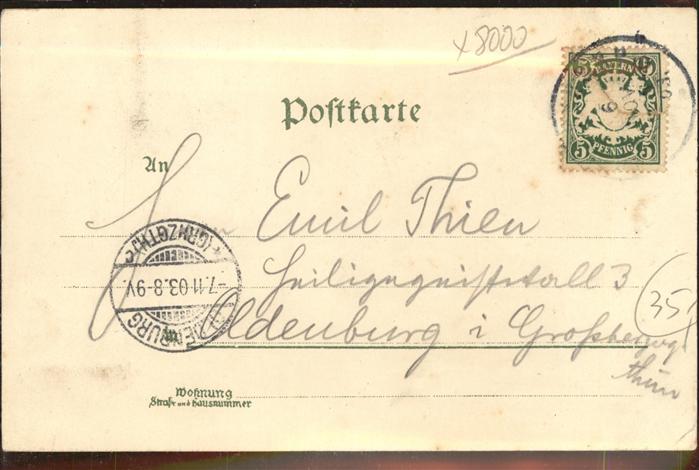 x 8000
Postkarte
BAYERN
5 5
PFENNIG
An
Emil Thien
Heiligengeiststwall 3
Oldenburg i Großherzog
thum
35,
OLDENBURG
-7.11.03.8-9V.
*(GRHZGTH.)c
Wohnung
Straße und Hausnummer